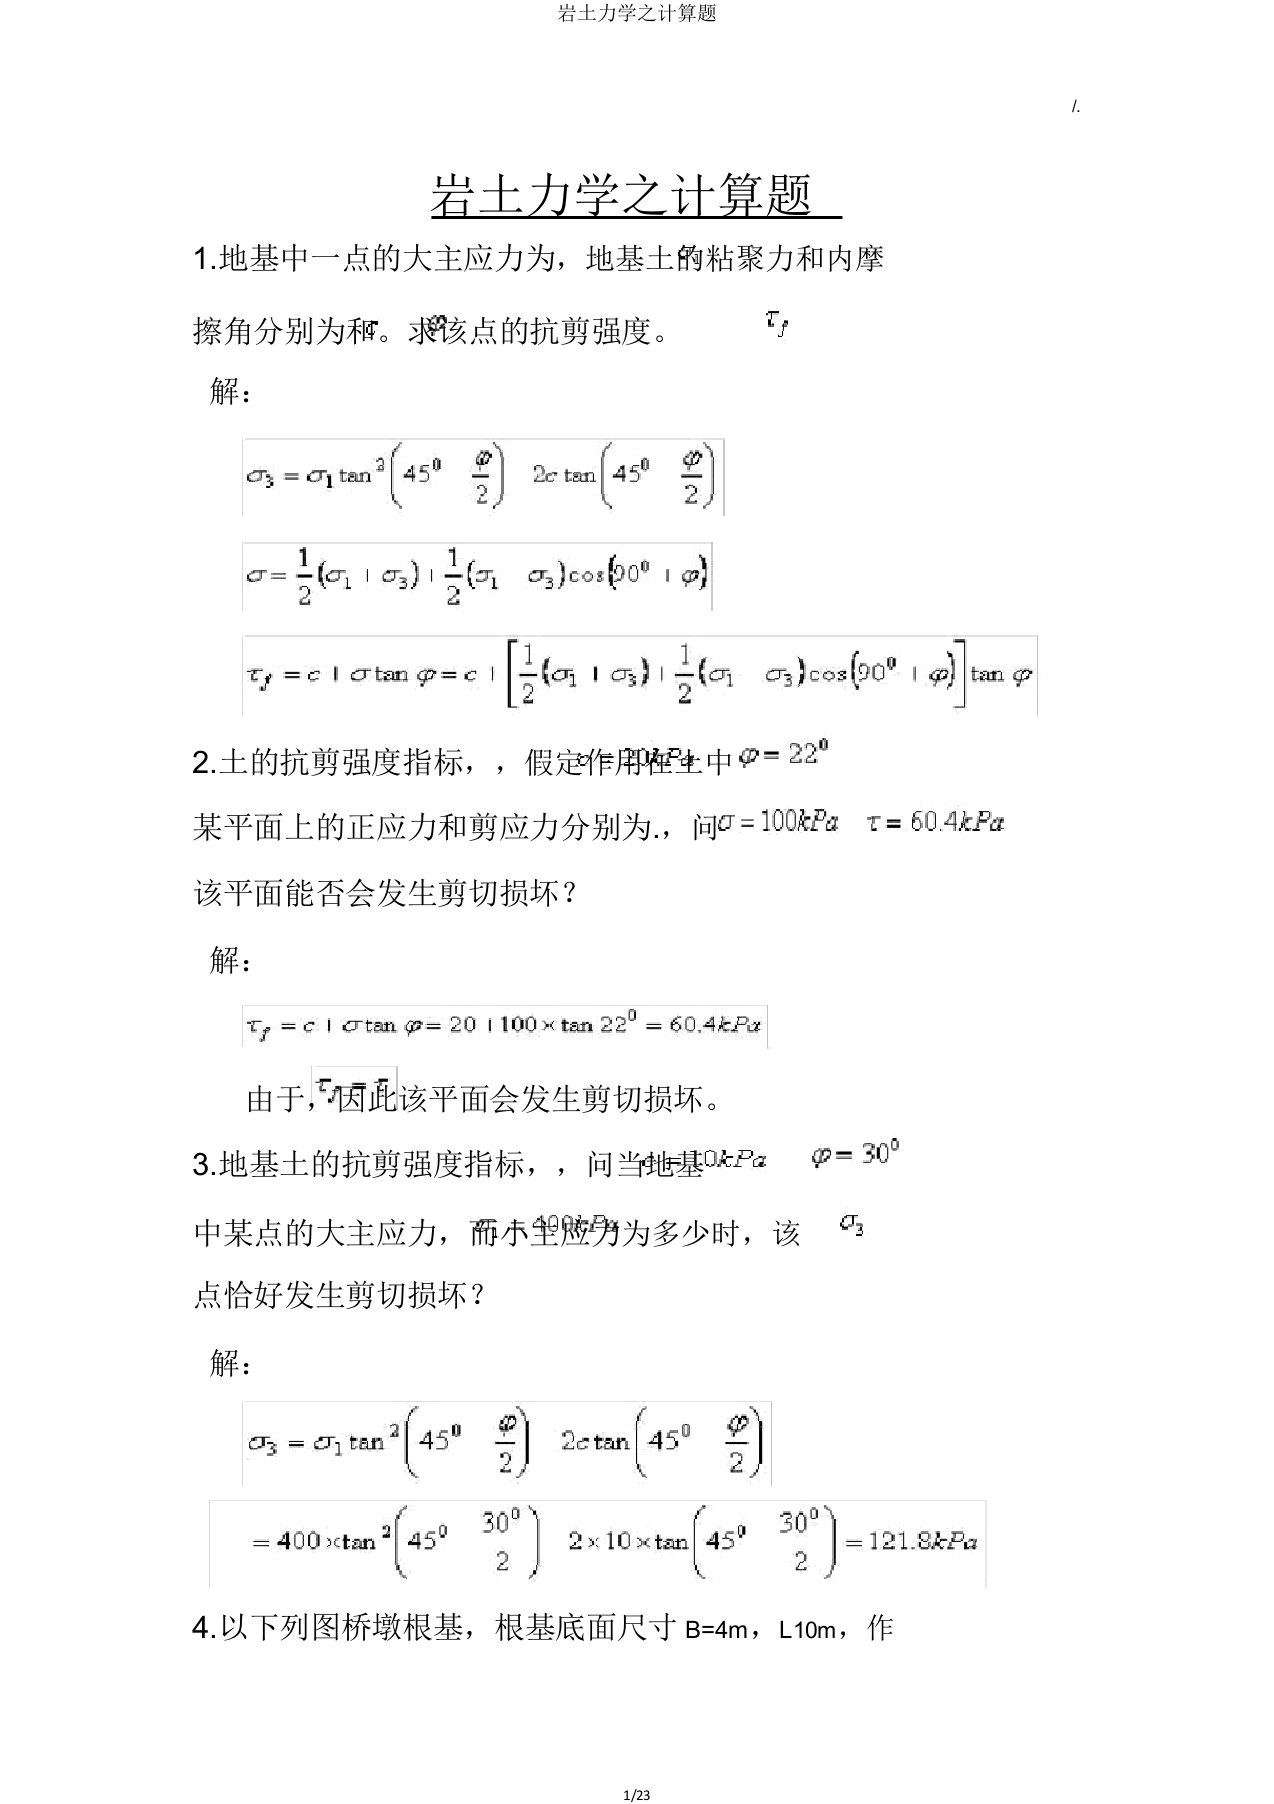 岩土力学之计算题
/.
岩土力学之计算题
1.地基中一点的大主应力为，地基土的粘聚力和内摩
擦角分别为和。求该点的抗剪强度。 τf
解：
σ3 = σ1 tan²(45⁰ φ/2) 2c tan(45⁰ φ/2)
σ = 1/2(σ1 + σ3) + 1/2(σ1 σ3)cos(90⁰ + φ)
τf = c + σ tan φ = c + [1/2(σ1 + σ3) + 1/2(σ1 σ3)cos(90⁰ + φ)] tan φ
2.土的抗剪强度指标，，假定作用在土中 φ = 22⁰
某平面上的正应力和剪应力分别为.，问 σ = 100kPa τ = 60.4kPa
该平面能否会发生剪切损坏？
解：
τf = c + σ tan φ = 20 + 100 × tan 22⁰ = 60.4kPa
由于，因此该平面会发生剪切损坏。 τf = τ
3.地基土的抗剪强度指标，，问当地基 c = 10kPa φ = 30⁰
中某点的大主应力，而小主应力为多少时，该 σ1 = 400kPa σ3
点恰好发生剪切损坏？
解：
σ3 = σ1 tan²(45⁰ φ/2) 2c tan(45⁰ φ/2)
= 400 × tan²(45⁰ 30⁰/2) 2 × 10 × tan(45⁰ 30⁰/2) = 121.8kPa
4.以下列图桥墩根基，根基底面尺寸 B=4m，L10m，作
1/23